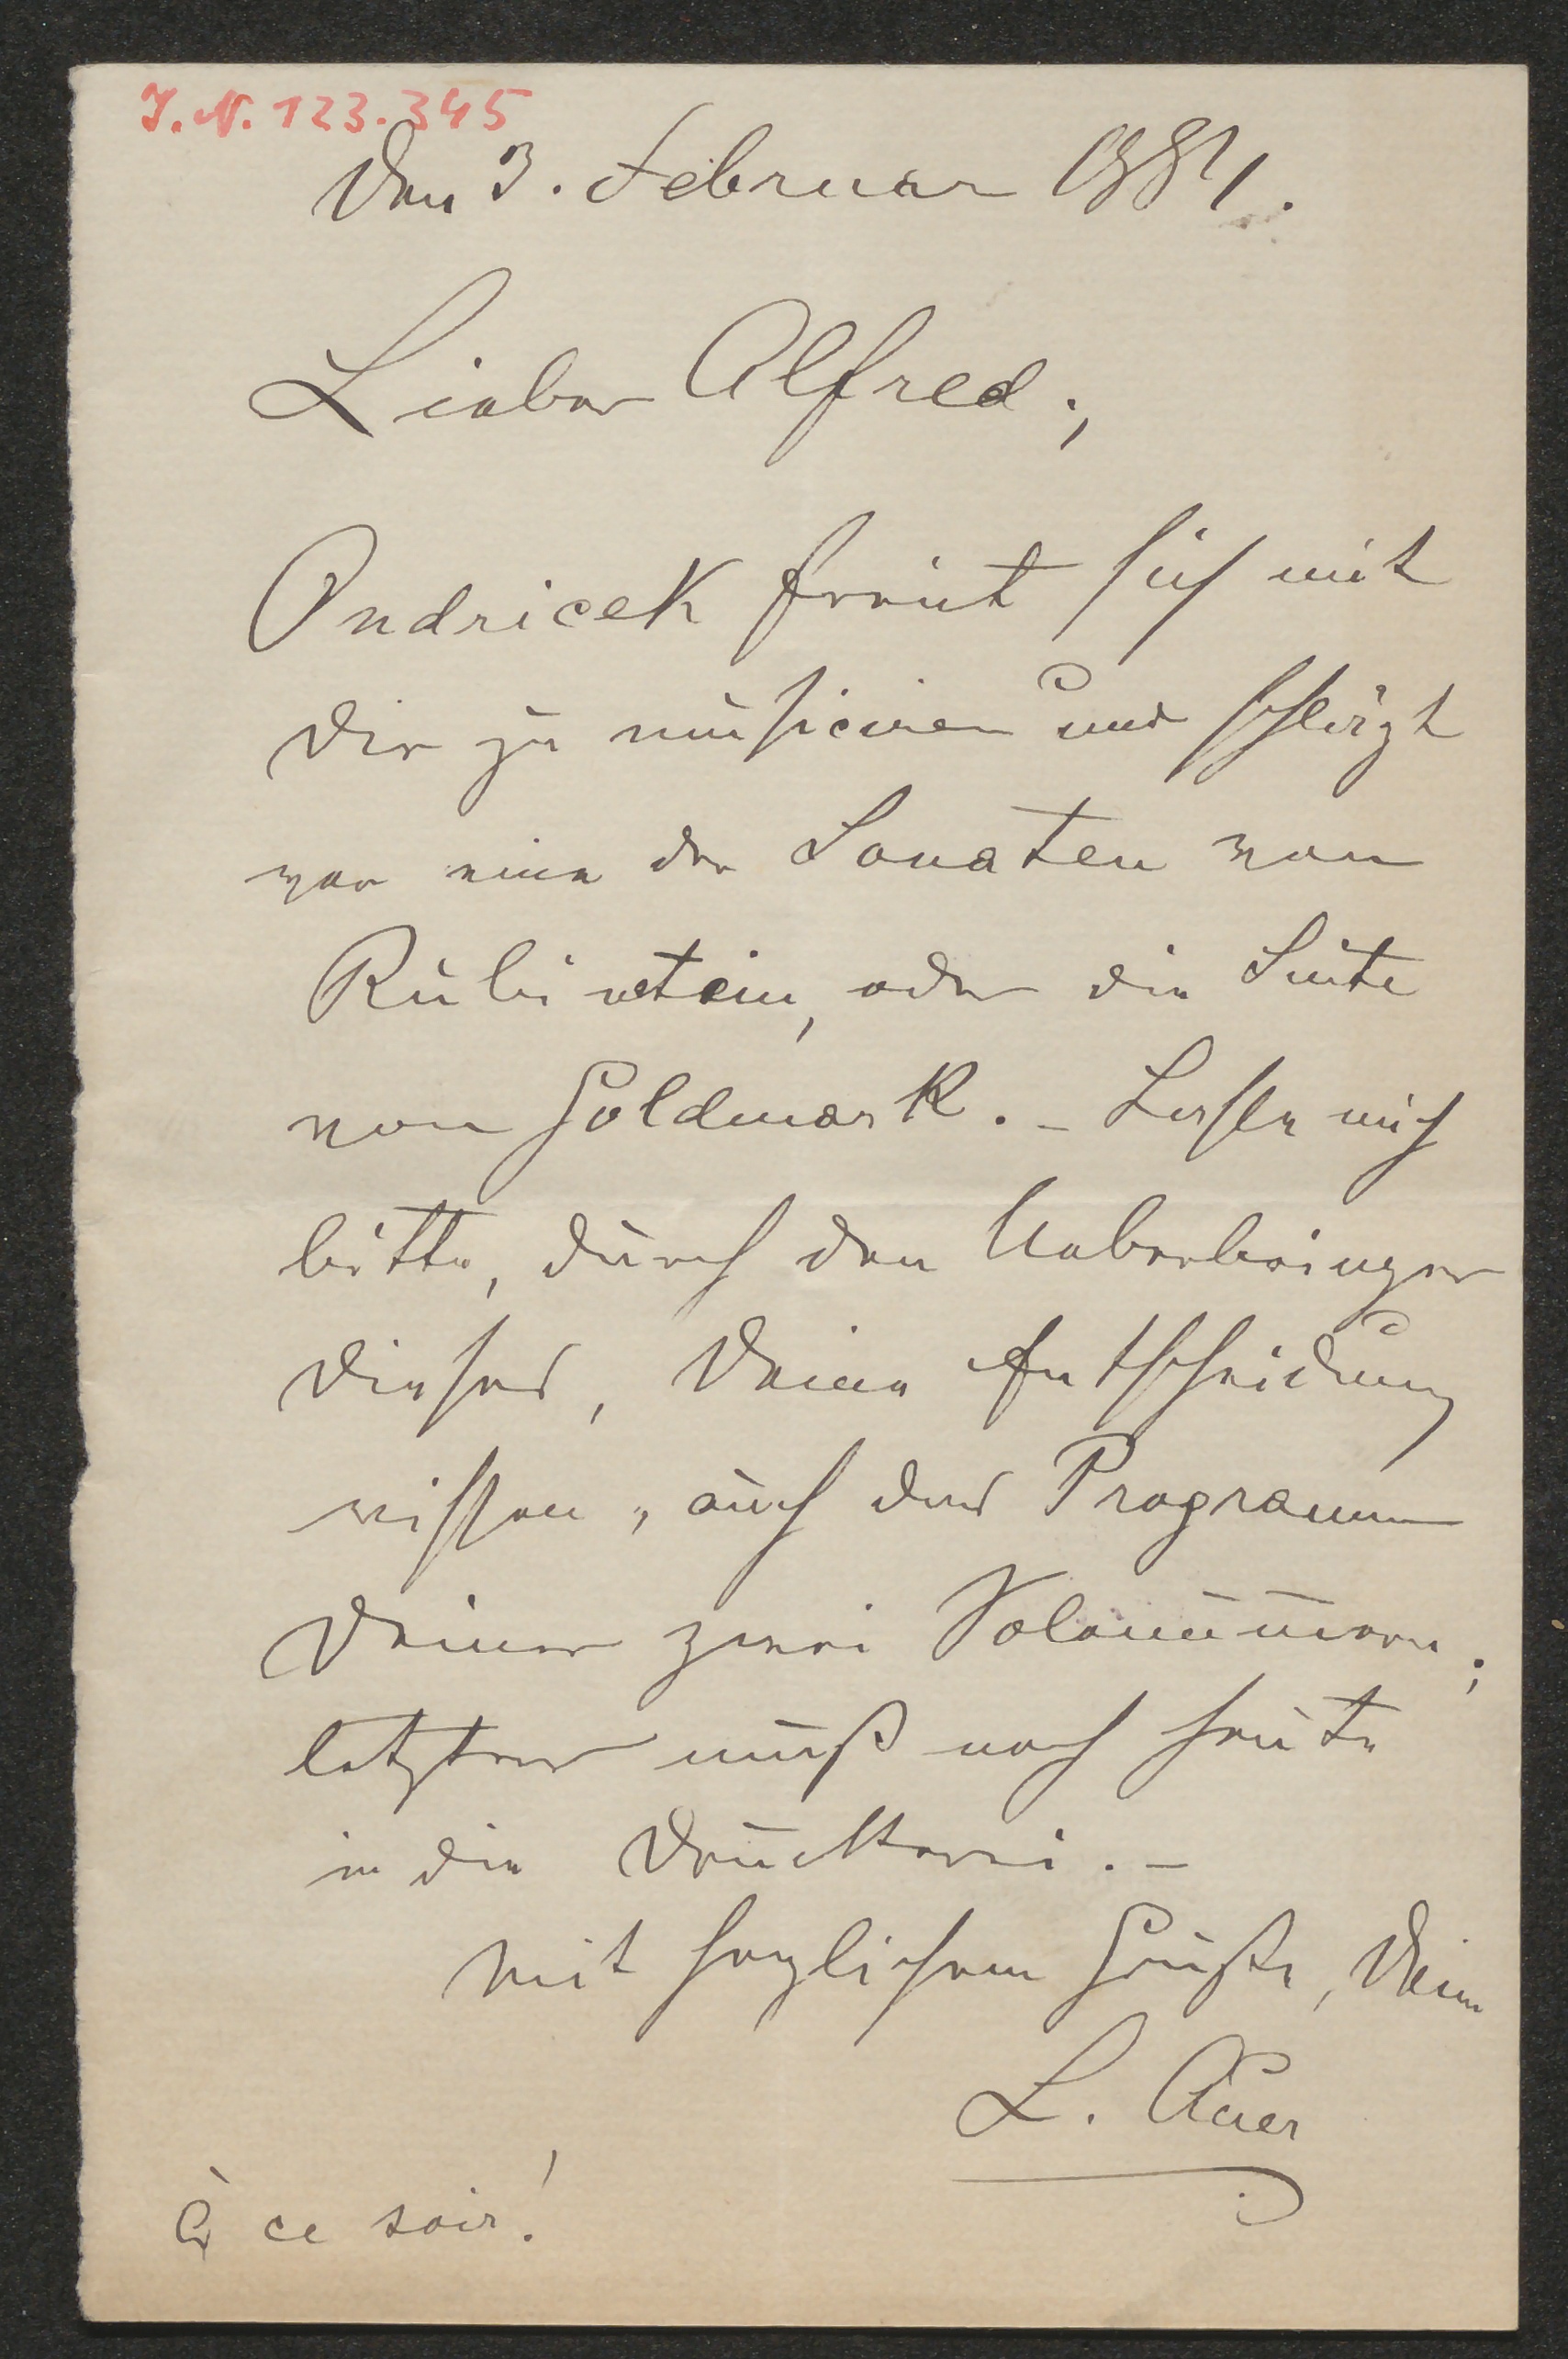 J. N. 123.345
Den 3. Februar 1884.
Lieber Alfred;
Ondricek freut sich mit
Dir zu musiciren und schlägt
vor eine der Sonaten von
Rubinstein, oder die Suite
von Goldmark. – Lasse mich
bitte, durch den Ueberbringer
dieses, Deine Entscheidung
wissen, auch das Programm
Deiner zwei Solonum̅ern;
letzteres muß noch heute
in die Druckerei. –
Mit herzlichem Gruße, Dein
L. Auer
À ce soir!